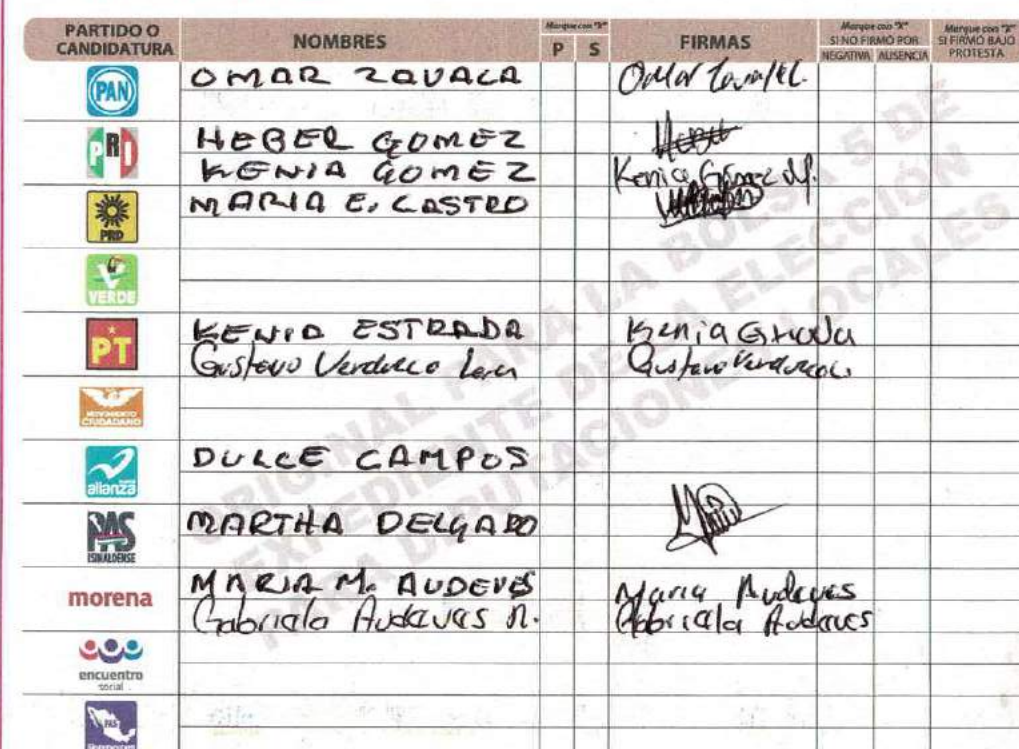 PARTIDO O CANDIDATURA
NOMBRES
Marque con "X"
P S
FIRMAS
Marque con "X"
SI NO FIRMÓ POR
NEGATIVA AUSENCIA
Marque con "X"
SI FIRMÓ BAJO PROTESTA
PAN
OMAR ZAVALA
PRI
HEBER GOMEZ
KENIA GOMEZ
Kenia Gómez
PRD
MARIA E. CASTRO
VERDE
PT
KENIA ESTRADA
Kenia
Gustavo Verdugo
Gustavo
MOVIMIENTO CIUDADANO
alianza
DULCE CAMPOS
PAS
SINALOENSE
MARTHA DELGADO
morena
MARIA M. AUDEVES
Maria Audeves
Gabriela Audeves N.
Gabriela Audeves
encuentro social
PAS
ORIGINAL PARA LA BOLSA 5 DE
EXPEDIENTE DE LA ELECCIÓN
PARA DIPUTACIONES LOCALES